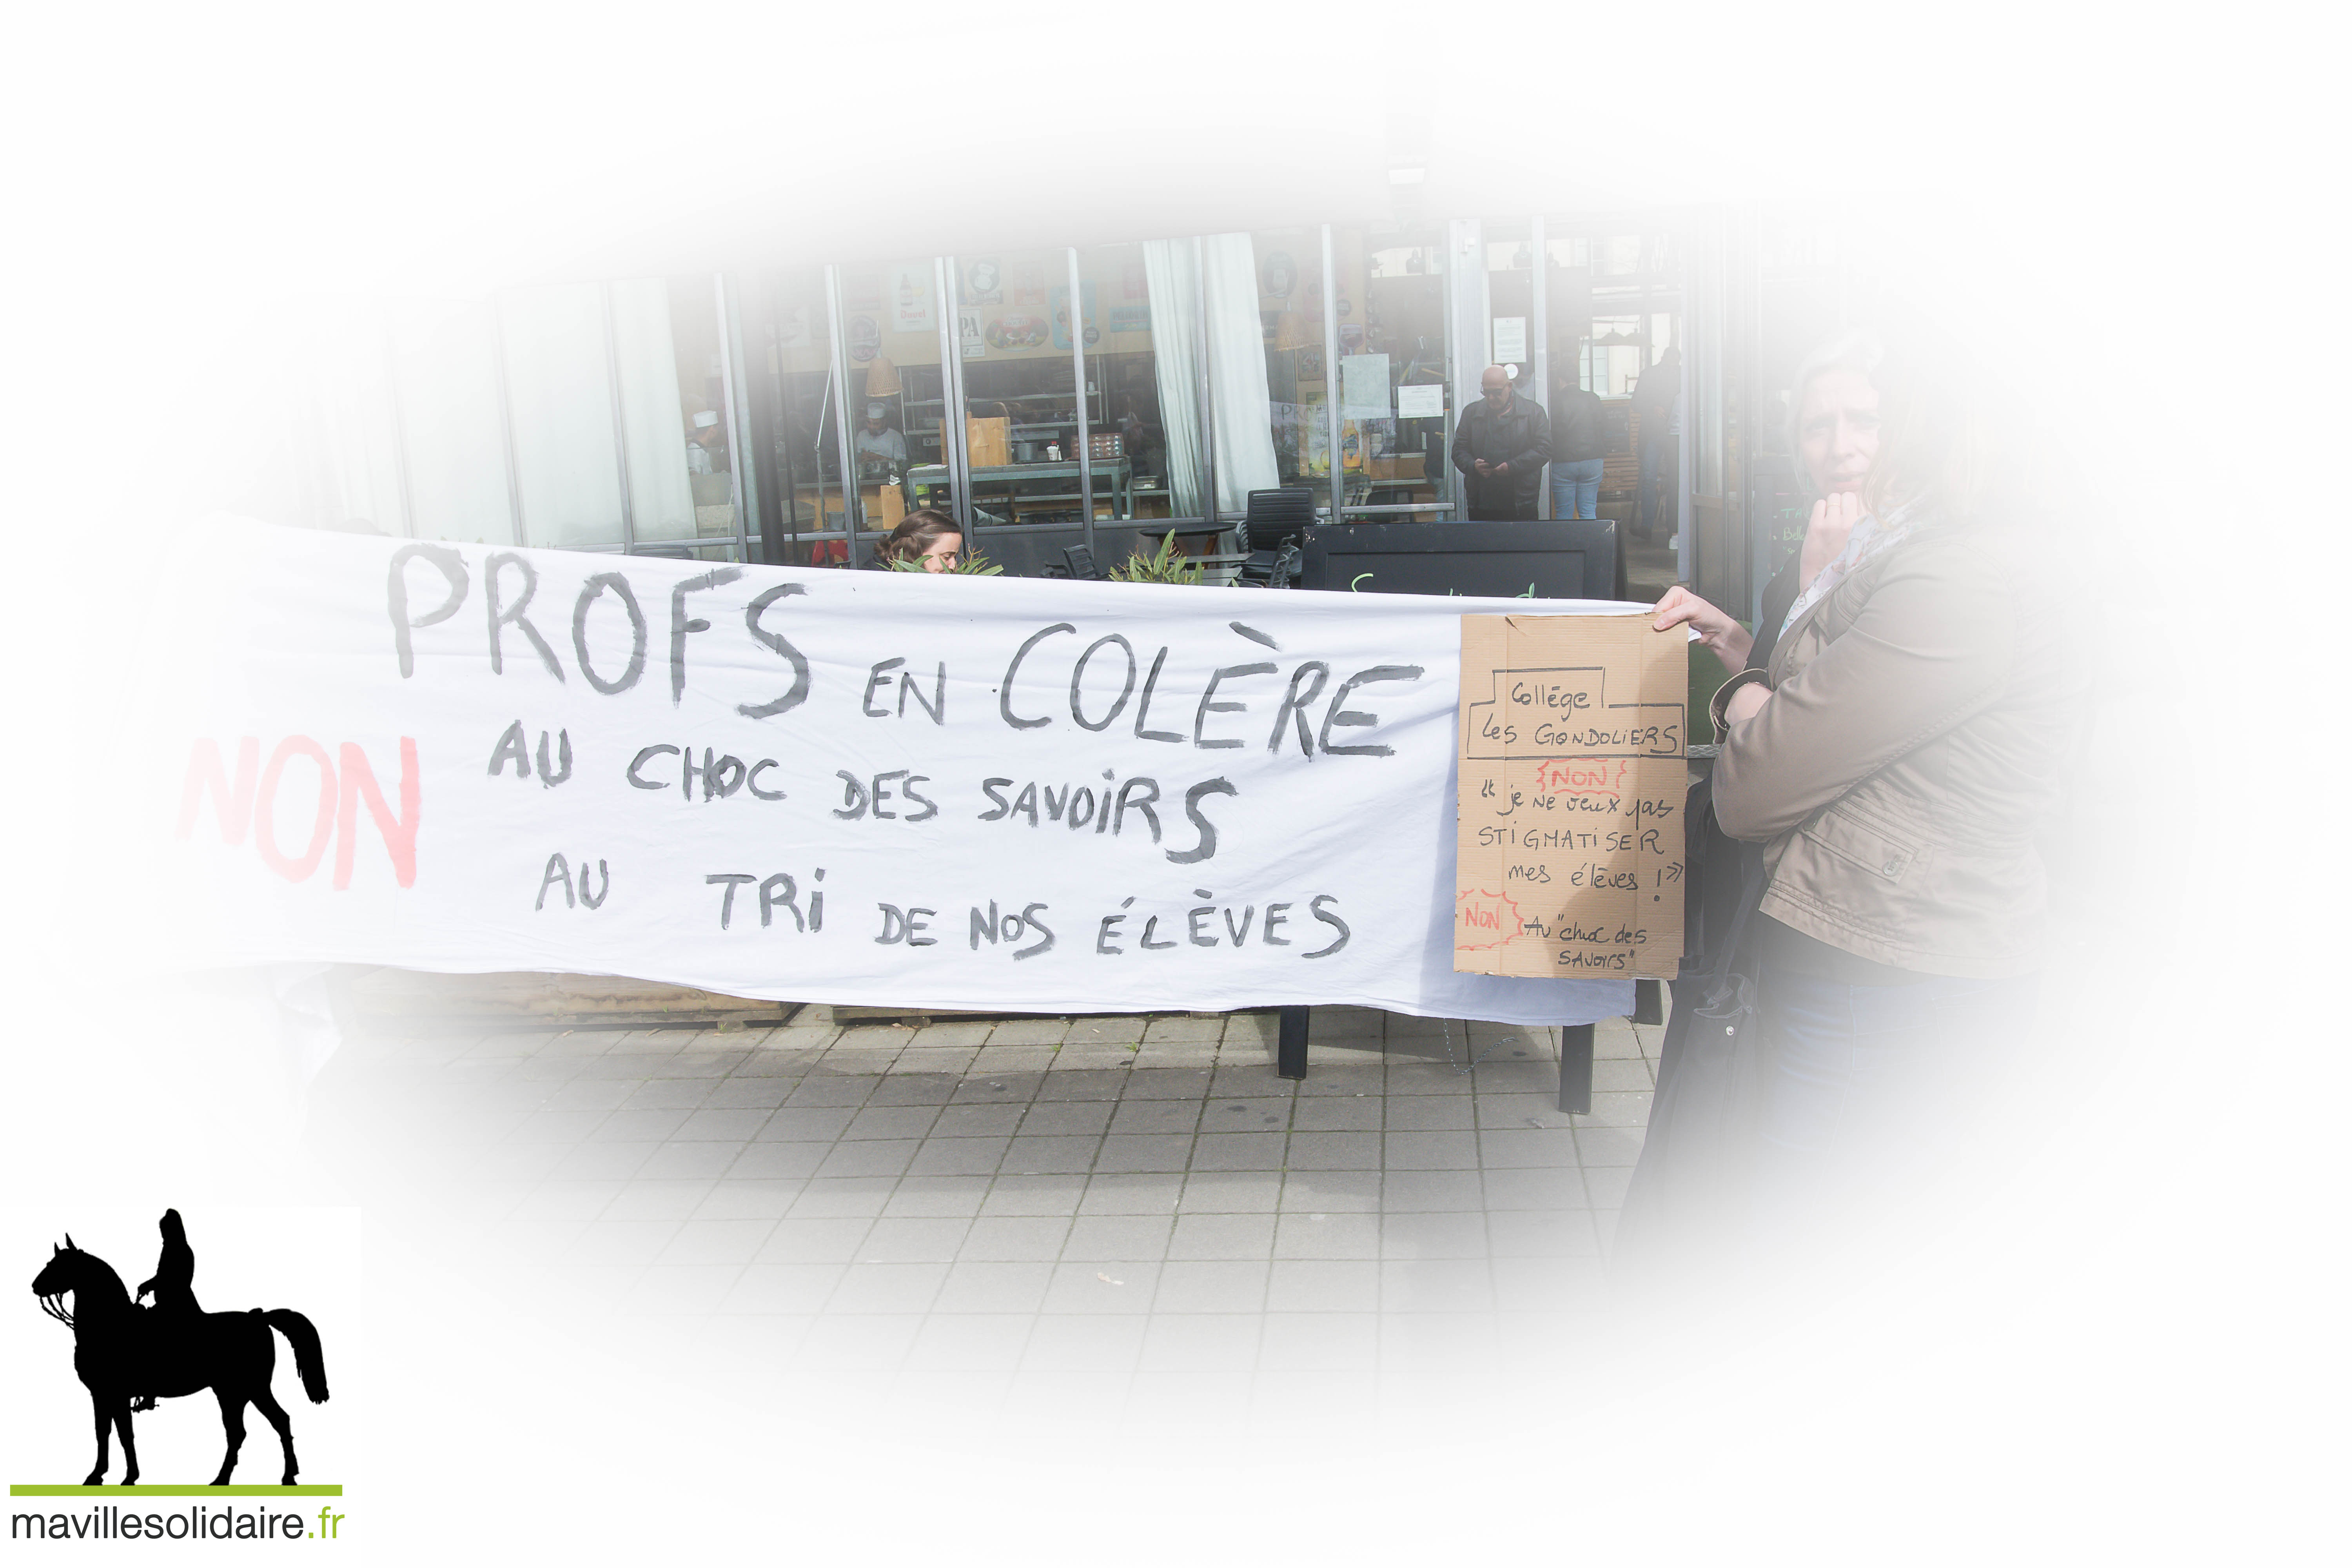 PROFS EN COLÈRE
NON AU CHOC DES SAVOIRS
AU TRI DE NOS ÉLÈVES
Collège
Les GONDOLIERS
NON
"je ne veux pas
STIGMATISER
mes élèves !"
NON Au "choc des
SAVOIRS"
PA
mavillesolidaire.fr